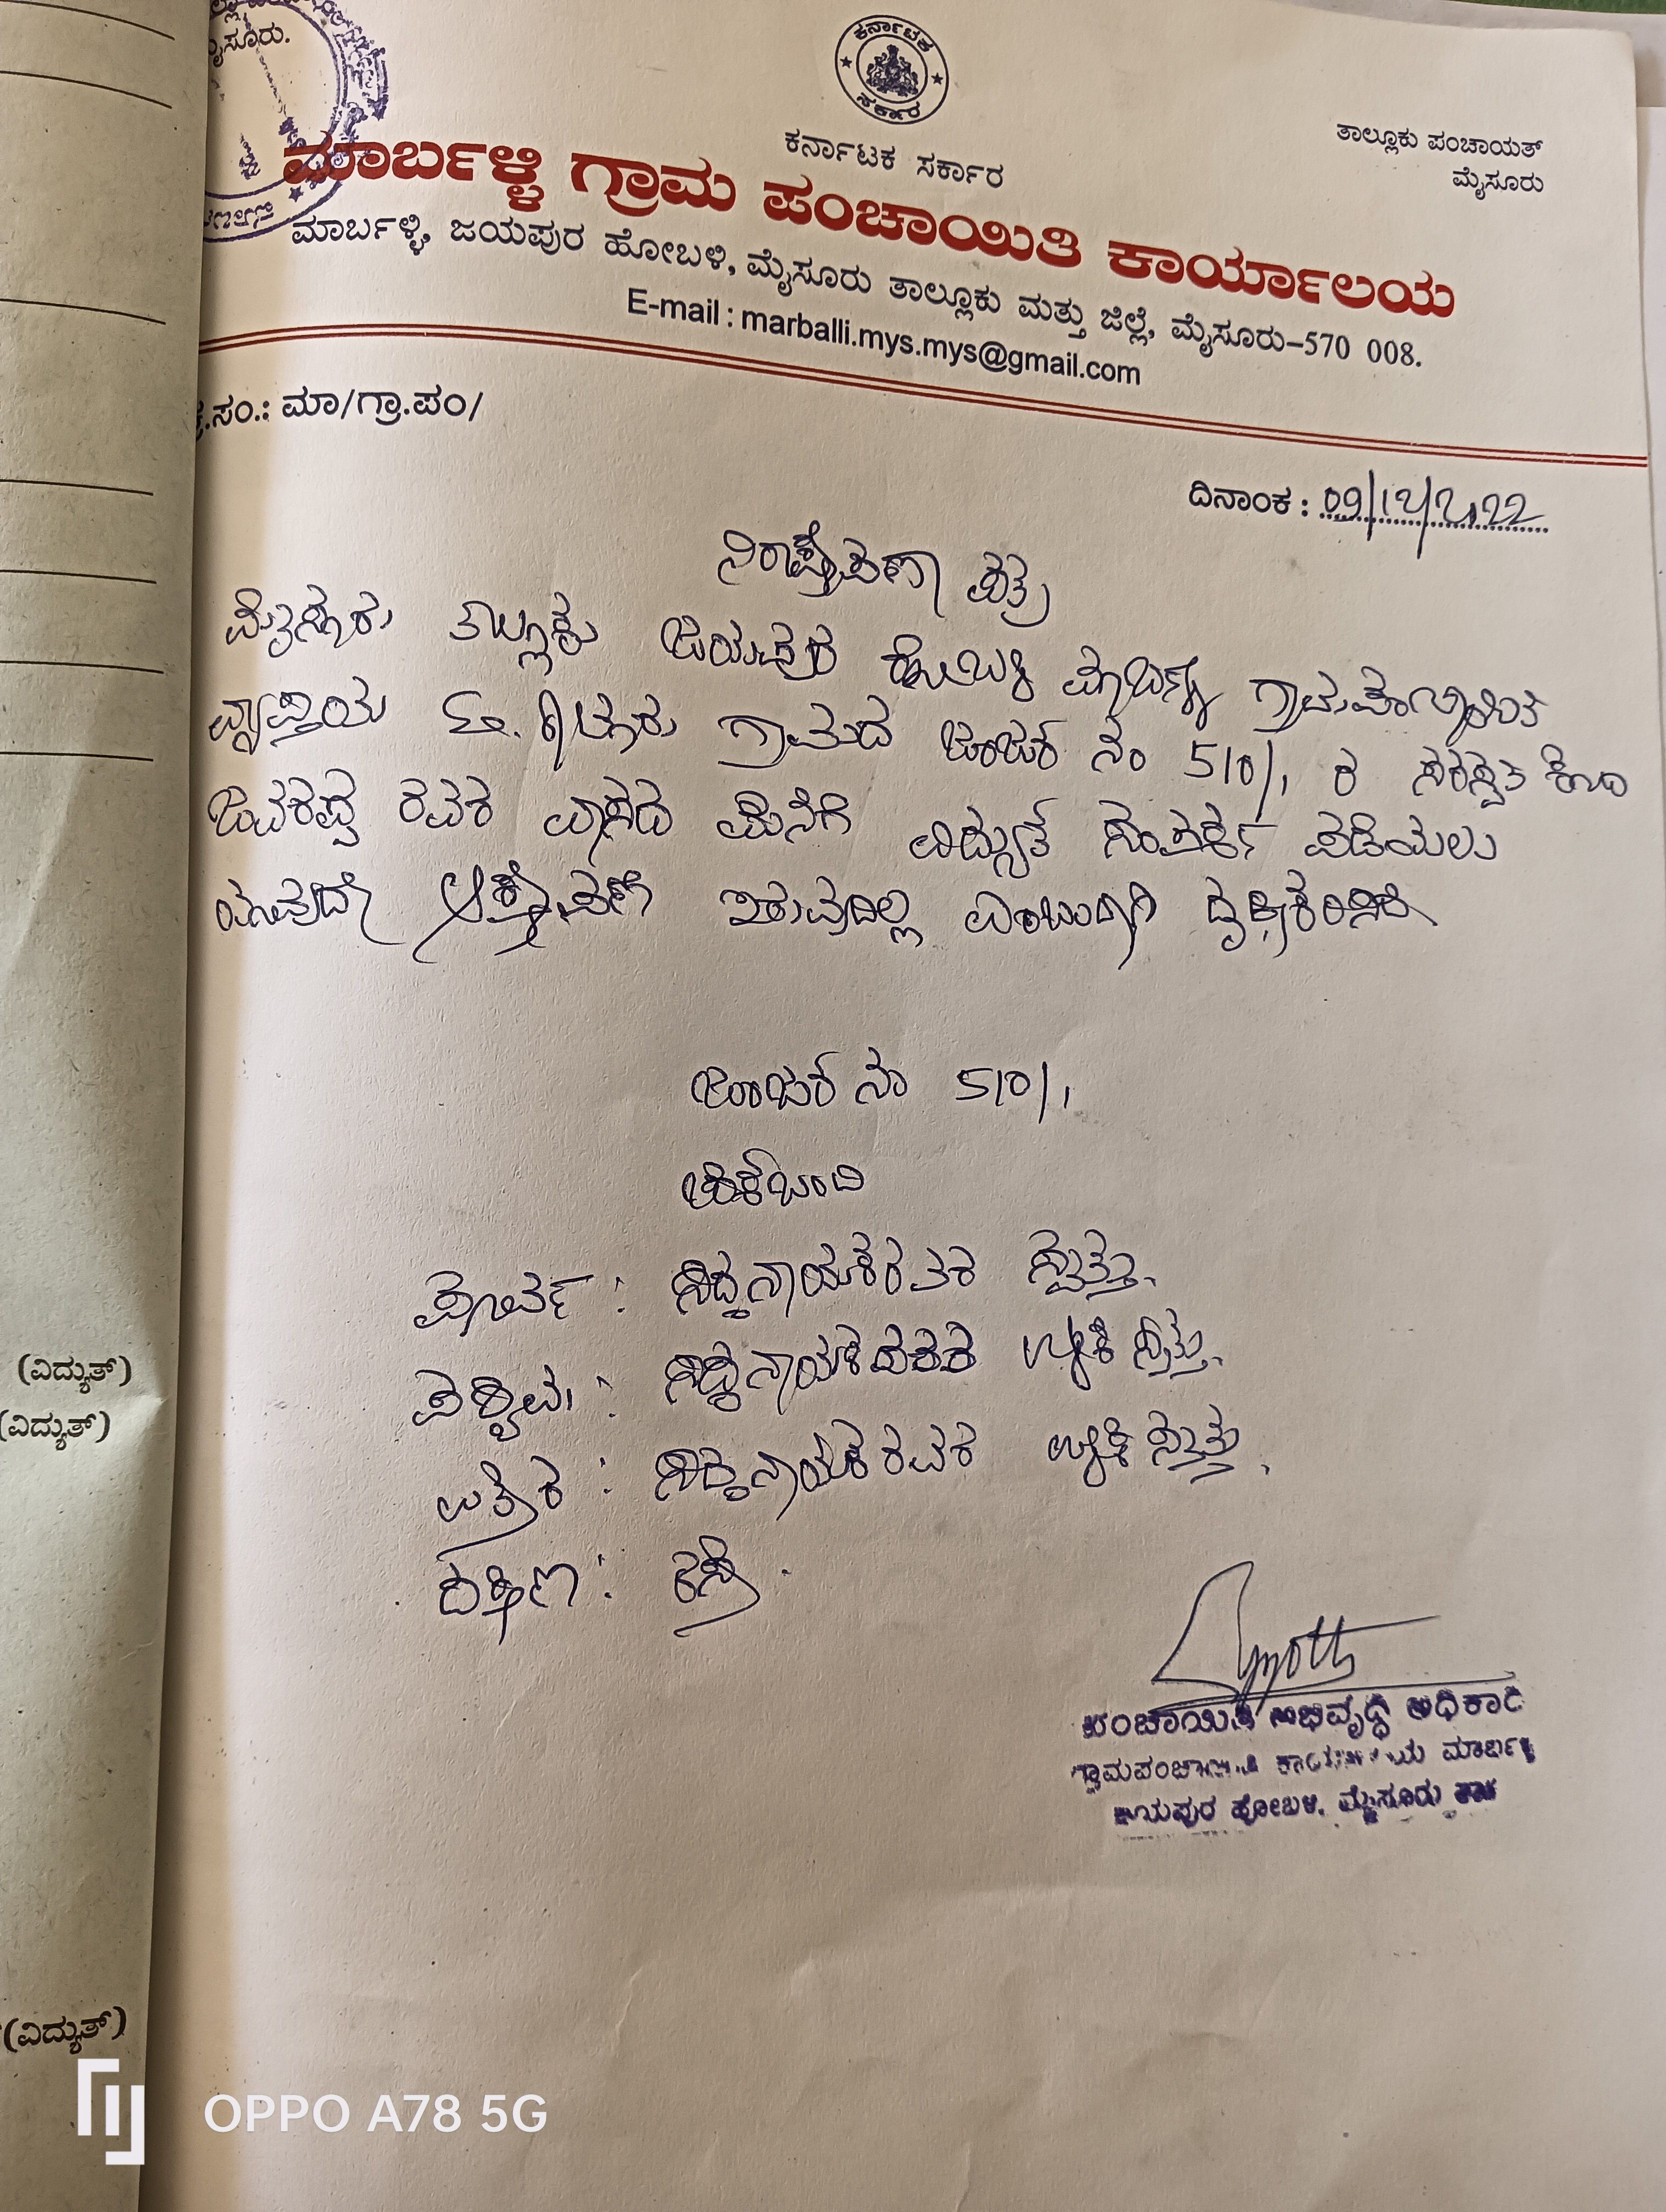 ಮೈಸೂರು.
ಕರ್ನಾಟಕ
ಸರ್ಕಾರ
ಕರ್ನಾಟಕ ಸರ್ಕಾರ
ತಾಲ್ಲೂಕು ಪಂಚಾಯತ್
ಮೈಸೂರು
ಮಾರ್ಬಳ್ಳಿ ಗ್ರಾಮ ಪಂಚಾಯಿತಿ ಕಾರ್ಯಾಲಯ
ಮಾರ್ಬಳ್ಳಿ, ಜಯಪುರ ಹೋಬಳಿ, ಮೈಸೂರು ತಾಲ್ಲೂಕು ಮತ್ತು ಜಿಲ್ಲೆ, ಮೈಸೂರು–570 008.
E-mail : marballi.mys.mys@gmail.com
ಕ್ರ.ಸಂ.: ಮಾ/ಗ್ರಾ.ಪಂ/
ದಿನಾಂಕ : 09/12/2022
ನಿರಾಪ್ಷೇಪಣಾ ಪತ್ರ
ಮೈಸೂರು ತಾಲ್ಲೂಕು ಜಯಪುರ ಹೋಬಳಿ ಮಾರ್ಬಳ್ಳಿ ಗ್ರಾಮಪಂಚಾಯಿತಿ
ವ್ಯಾಪ್ತಿಯ ಗ್ರಾಮದ ಜಂಜರ್ ನಂ 510/1 ರ
ರವರ ವಾಸದ ಮನೆಗೆ ವಿದ್ಯುತ್ ಸಂಪರ್ಕ ಪಡೆಯಲು
ಯಾವುದೇ ಆಕ್ಷೇಪಣೆ ಇರುವುದಿಲ್ಲ ಎಂಬುದಾಗಿ ದೃಢೀಕರಿಸಿದೆ
ಜಂಜರ್ ನಂ 510/1
ಚೆಕ್‌ಬಂದಿ
ಪೂರ್ವ : ಸಿದ್ದನಾಯಕರವರ ಸ್ವತ್ತು.
ಪಶ್ಚಿಮ : ಸಿದ್ದನಾಯಕರವರ ಉಳಿಕೆ ಸ್ವತ್ತು.
ಉತ್ತರ : ಸಿದ್ದನಾಯಕರವರ ಉಳಿಕೆ ಸ್ವತ್ತು.
ದಕ್ಷಿಣ : ರಸ್ತೆ.
ಪಂಚಾಯಿತಿ ಅಭಿವೃದ್ಧಿ ಅಧಿಕಾರಿ
ಗ್ರಾಮಪಂಚಾಯಿತಿ ಕಾರ್ಯಾಲಯ ಮಾರ್ಬಳ್ಳಿ
ಜಯಪುರ ಹೋಬಳಿ, ಮೈಸೂರು ತಾ॥
(ವಿದ್ಯುತ್)
(ವಿದ್ಯುತ್)
(ವಿದ್ಯುತ್)
OPPO A78 5G